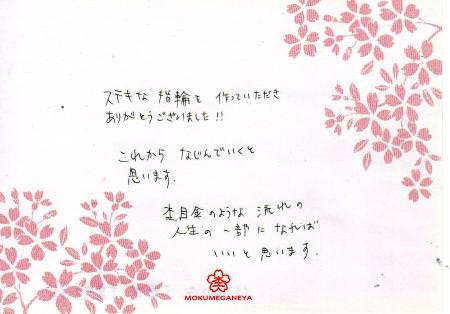 ステキな 指輪を 作っていただき
ありがとうございました!!
これから なじんでいくと
思います.
杢目金のような 流れの
人生の一部になれば
いいと思います.
MOKUMEGANEYA